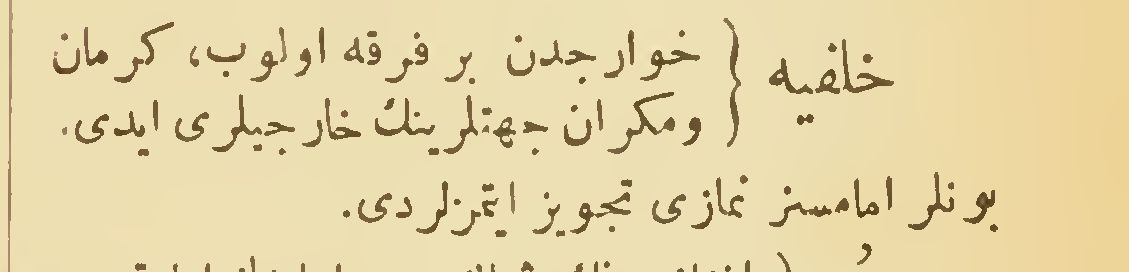 خلفیه { خوارجدن بر فرقه اولوب، كرمان
ومكران جهتلرينك خارجيلرى ايدى.
بونلر امامسز نمازى تجويز ايتمزلردى.